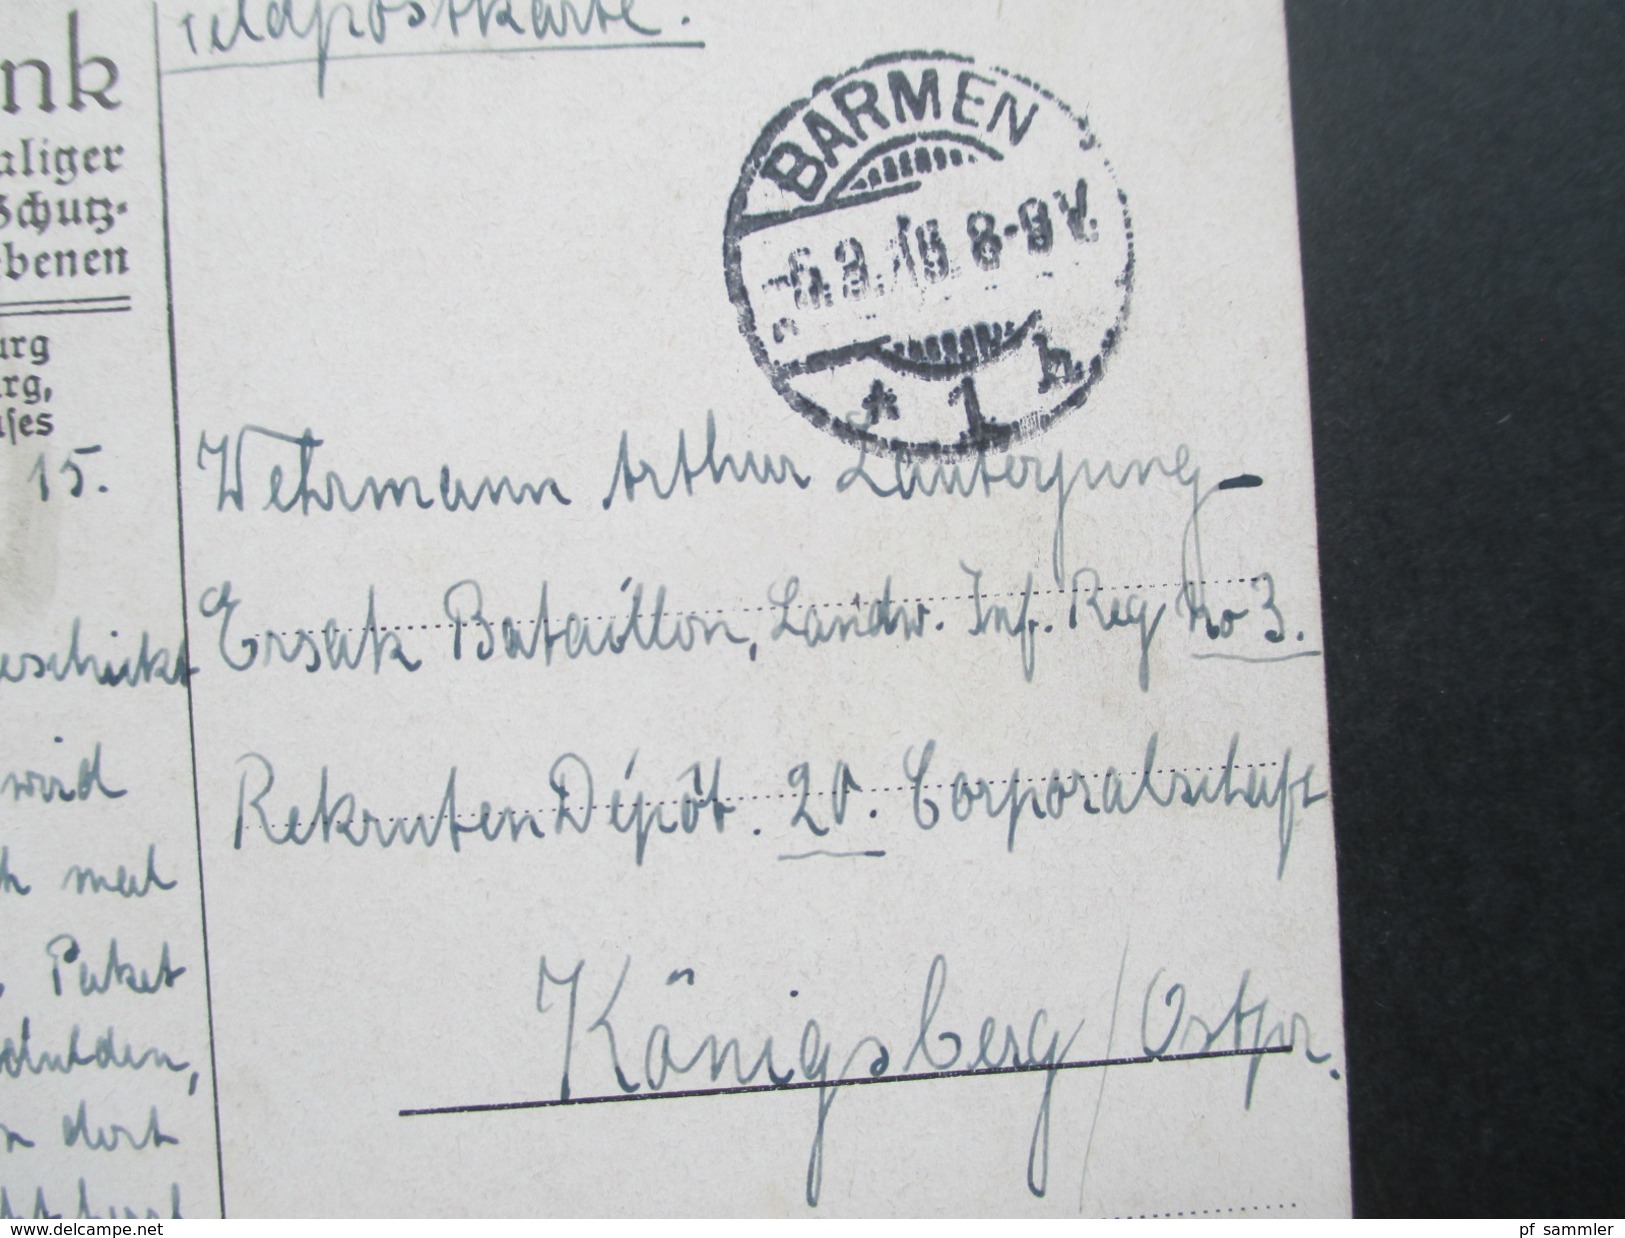 Feldpostkarte.
nk
aliger
Schutz-
ebenen
urg
rg,
uses
15.
eschickt
wird
mal
Paket
dulden,
n dort
BARMEN
-5.3.15. 8-9 V.
* 1 h
Wehrmann Arthur Lauterjung-
Ersak Bataillon, Landw. Inf. Reg No 3.
Rekruten Dépôt. 20. Corporalschaft
Königsberg / Ostpr.
www.delcampe.net
pf_sammler